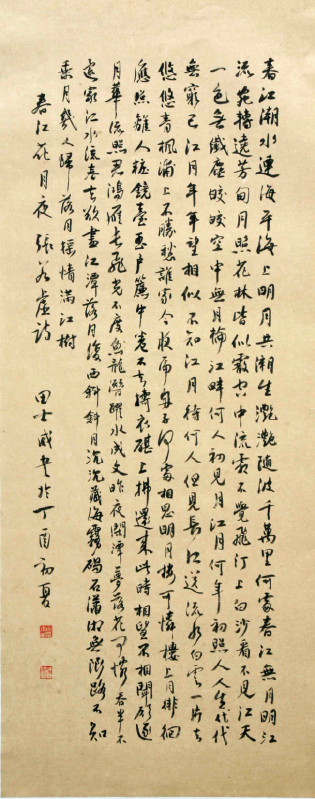 春江潮水連海平海上明月共潮生灧灧隨波千萬里何處春江無月明江
流宛轉遶芳甸月照花林皆似霰空中流霜不覺飛汀上白沙看不見江天
一色無纖塵皎皎空中孤月輪江畔何人初見月江月何年初照人人生代代
無窮已江月年年望相似不知江月待何人但見長江送流水白雲一片去
悠悠青楓浦上不勝愁誰家今夜扁舟子何處相思明月樓可憐樓上月徘徊
應照離人粧鏡臺玉戶簾中卷不去擣衣砧上拂還來此時相望不相聞願逐
月華流照君鴻雁長飛光不度魚龍潛躍水成文昨夜閑潭夢落花可憐春半不
還家江水流春去欲盡江潭落月復西斜斜月沉沉藏海霧碣石瀟湘無限路不知
乘月幾人歸落月搖情滿江樹
春江花月夜 張若虛詩
田士威書於丁酉初夏